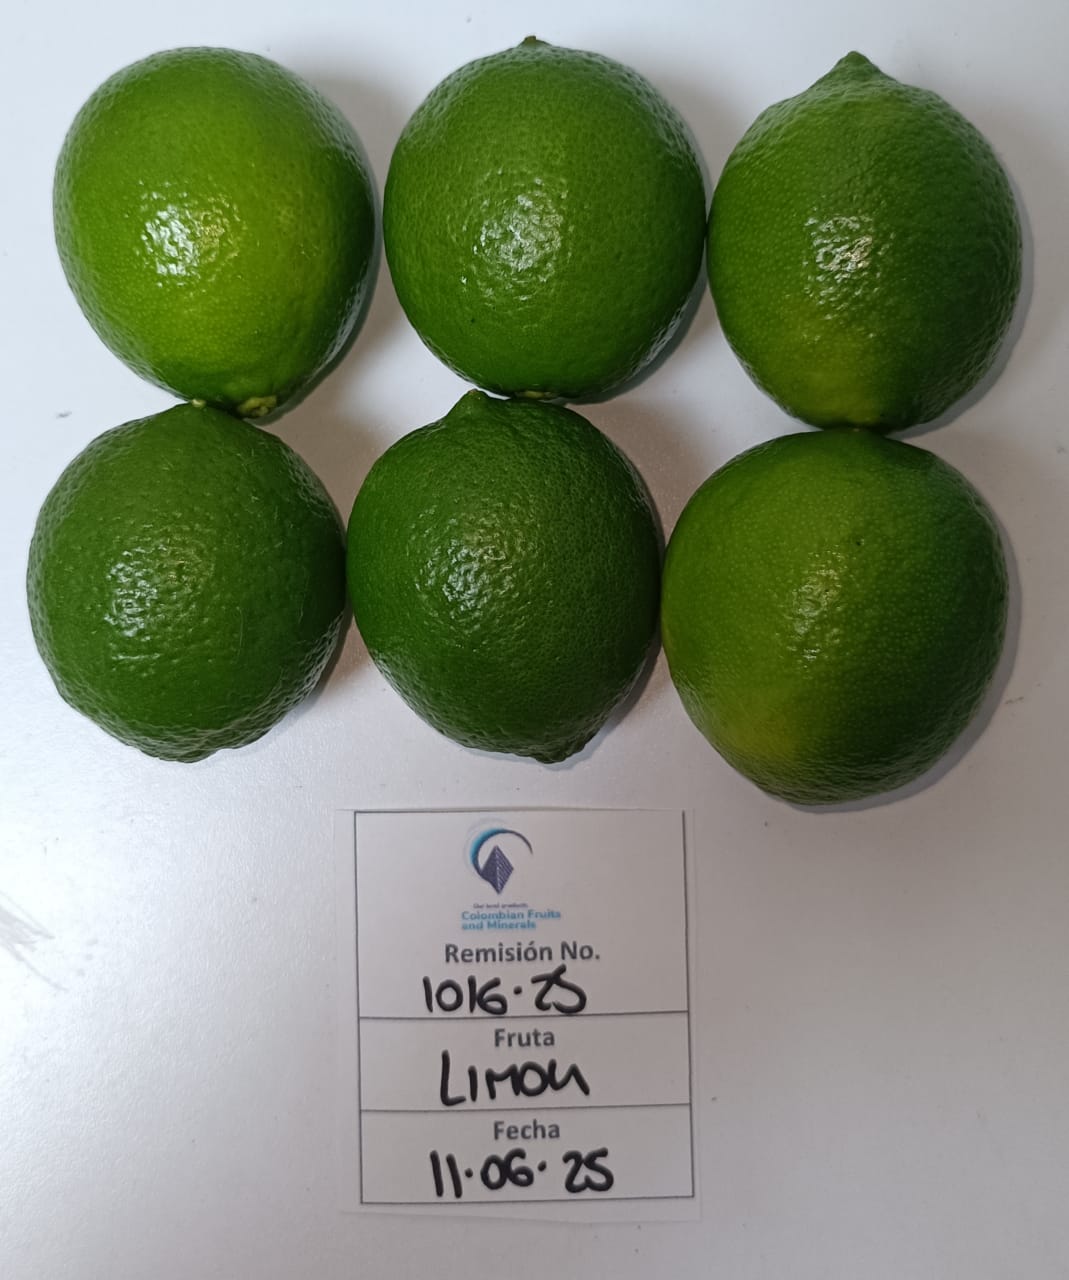 Our local products
Colombian Fruits
and Minerals
Remisión No.
1016-25
Fruta
LIMON
Fecha
11-06-25